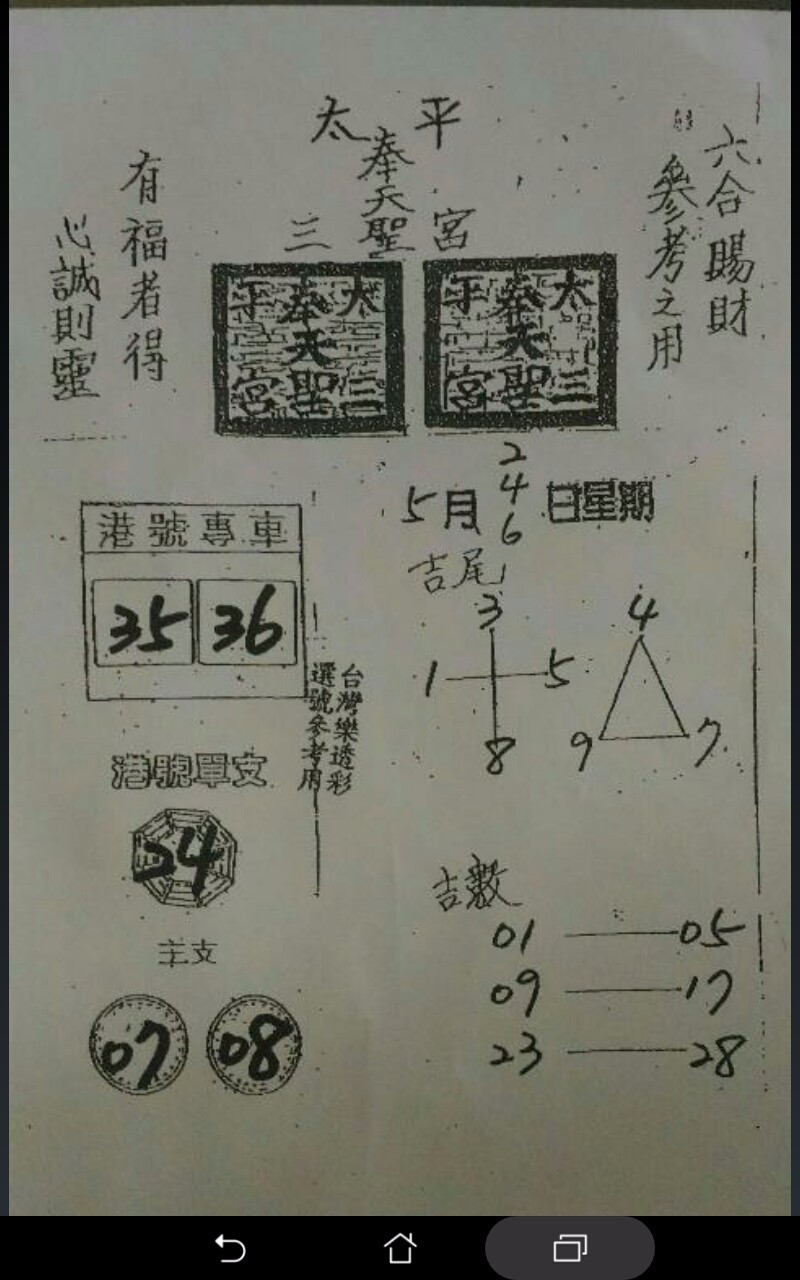 太平
奉天聖
三宮
六合賜財
參考之用
有福者得
心誠則靈
太三
奉天聖
平宮
太三
奉天聖
平宮
5月
2
4
6
日星期
港號專車
35 36
吉尾
3
1 5
8
4
9 7
台灣樂透彩
選號參考用
港號單支
24
主支
07 08
吉數
01 — 05
09 — 17
23 — 28